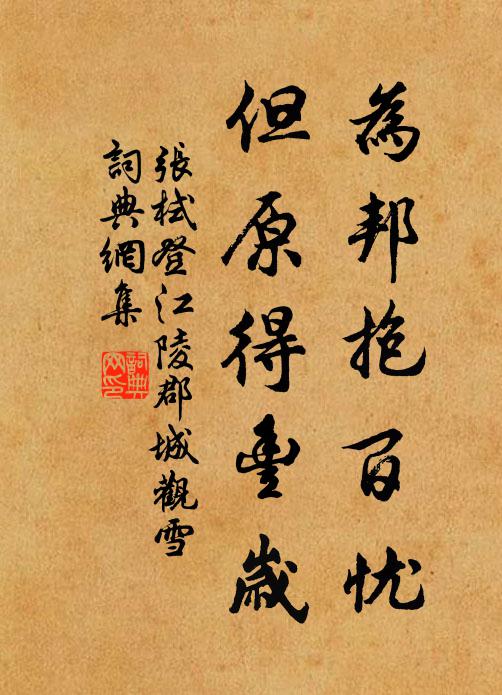 為邦抱百忧
但原得豊歲
張栻登江陵郡城觀雪
詞典網集
詞典網印